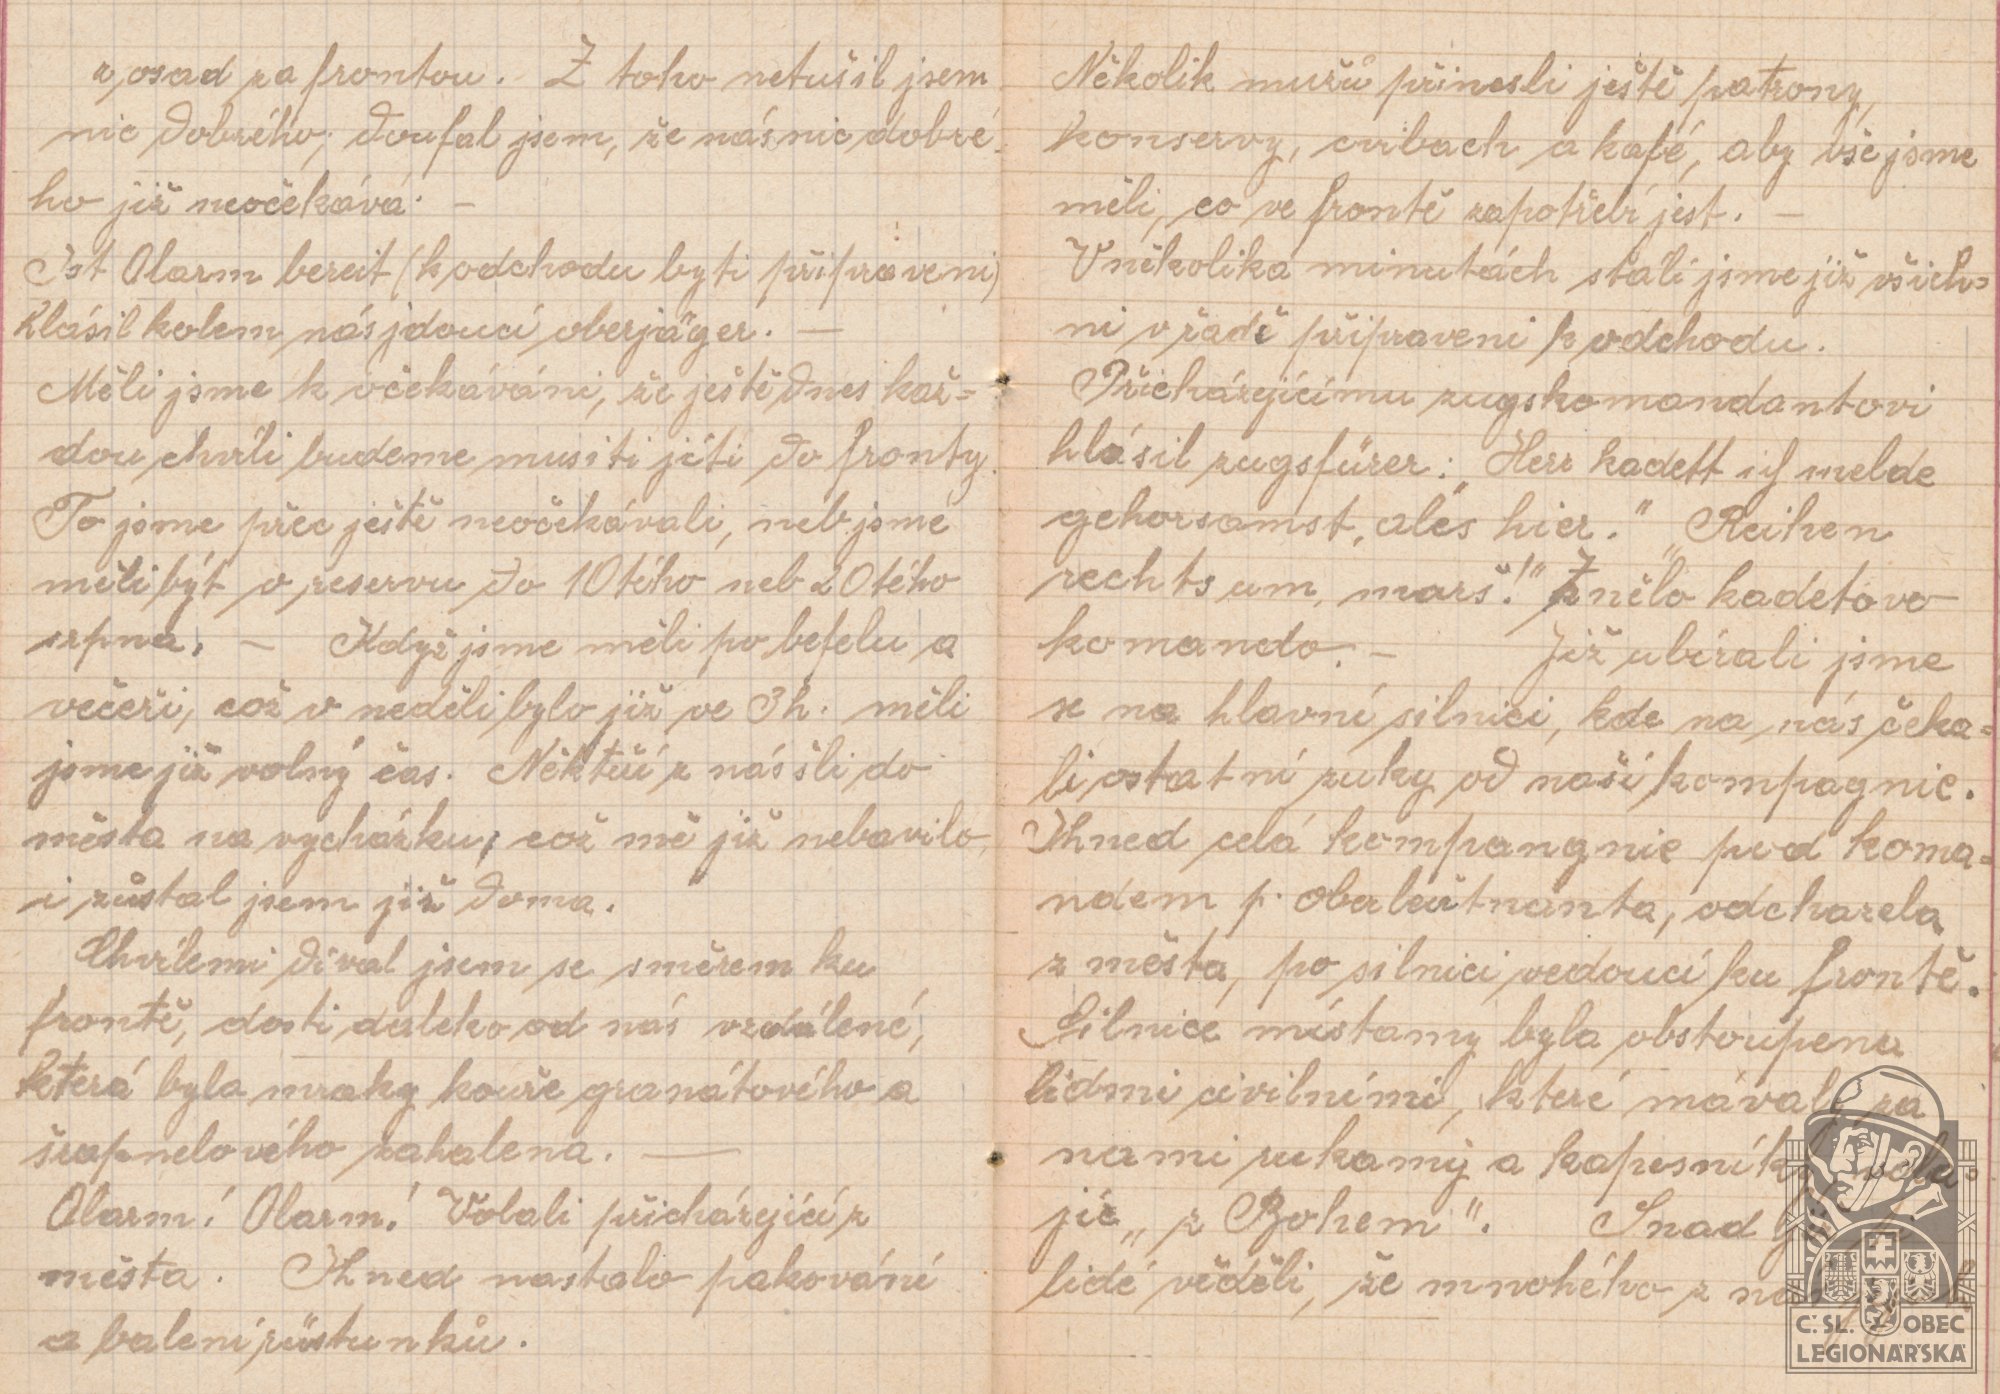 z osad za frontou. Z toho netušil jsem
nic dobrého; doufal jsem, že nás nic dobré-
ho již neočekává. —
Ist Olarm bereit (k odchodu byti připraveni)
hlásil kolem nás jdoucí oberjäger. —
Měli jsme k očekáváni, že ještě dnes kaž=
dou chvíli budeme musiti jíti do fronty.
To jsme přec ještě neočekávali, neb jsme
měli být v reservu do 10tého neb 20tého
srpna. — Když jsme měli po befelu a
večeři, což v neděli bylo již ve 3h. měli
jsme již volný čas. Někteří z nás šli do
města na vycházku, což mě již nebavilo,
i zůstal jsem již doma.
Chvílemi díval jsem se směrem ku
frontě, dosti daleko od nás vzdálené,
která byla mraky kouře granátového a
šrapnelového zahalena. —
Olarm! Olarm! Volali přicházející z
města. Ihned nastalo pakování
a balení rüstunků.
Několik mužů přinesli ještě patrony,
konservy, cvibach a kafé, aby vše jsme
měli, co ve frontě zapotřebí jest. —
V několika minutách stáli jsme již všich=
ni v řadě připraveni k odchodu.
Přicházejícímu zugskomandantovi
hlásil zugsfürer: „Herr kadett ich melde
gehorsamst, ales hier." „Reihen
rechts um, marš!" Znělo kadetovo
komando. — Již ubírali jsme
se na hlavní silnici, kde na nás čeka=
li ostatní zuky od naší kompagnie.
Ihned celá kompangnie pod koma=
ndem p. oberleutnanta, odcházela
z města, po silnici vedoucí ku frontě.
Silnice místamy byla obstoupena
lidmi civilními, které mávaly za
nami rukamy a kapesníky volu=
jíc „z Bohem". Snad
lidé věděli, že mnohého z
Č. SL. OBEC
LEGIONÁŘSKÁ